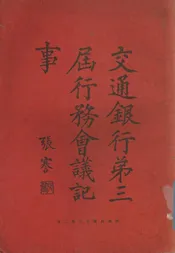 交通銀行第三
屆行務會議記
事
張謇